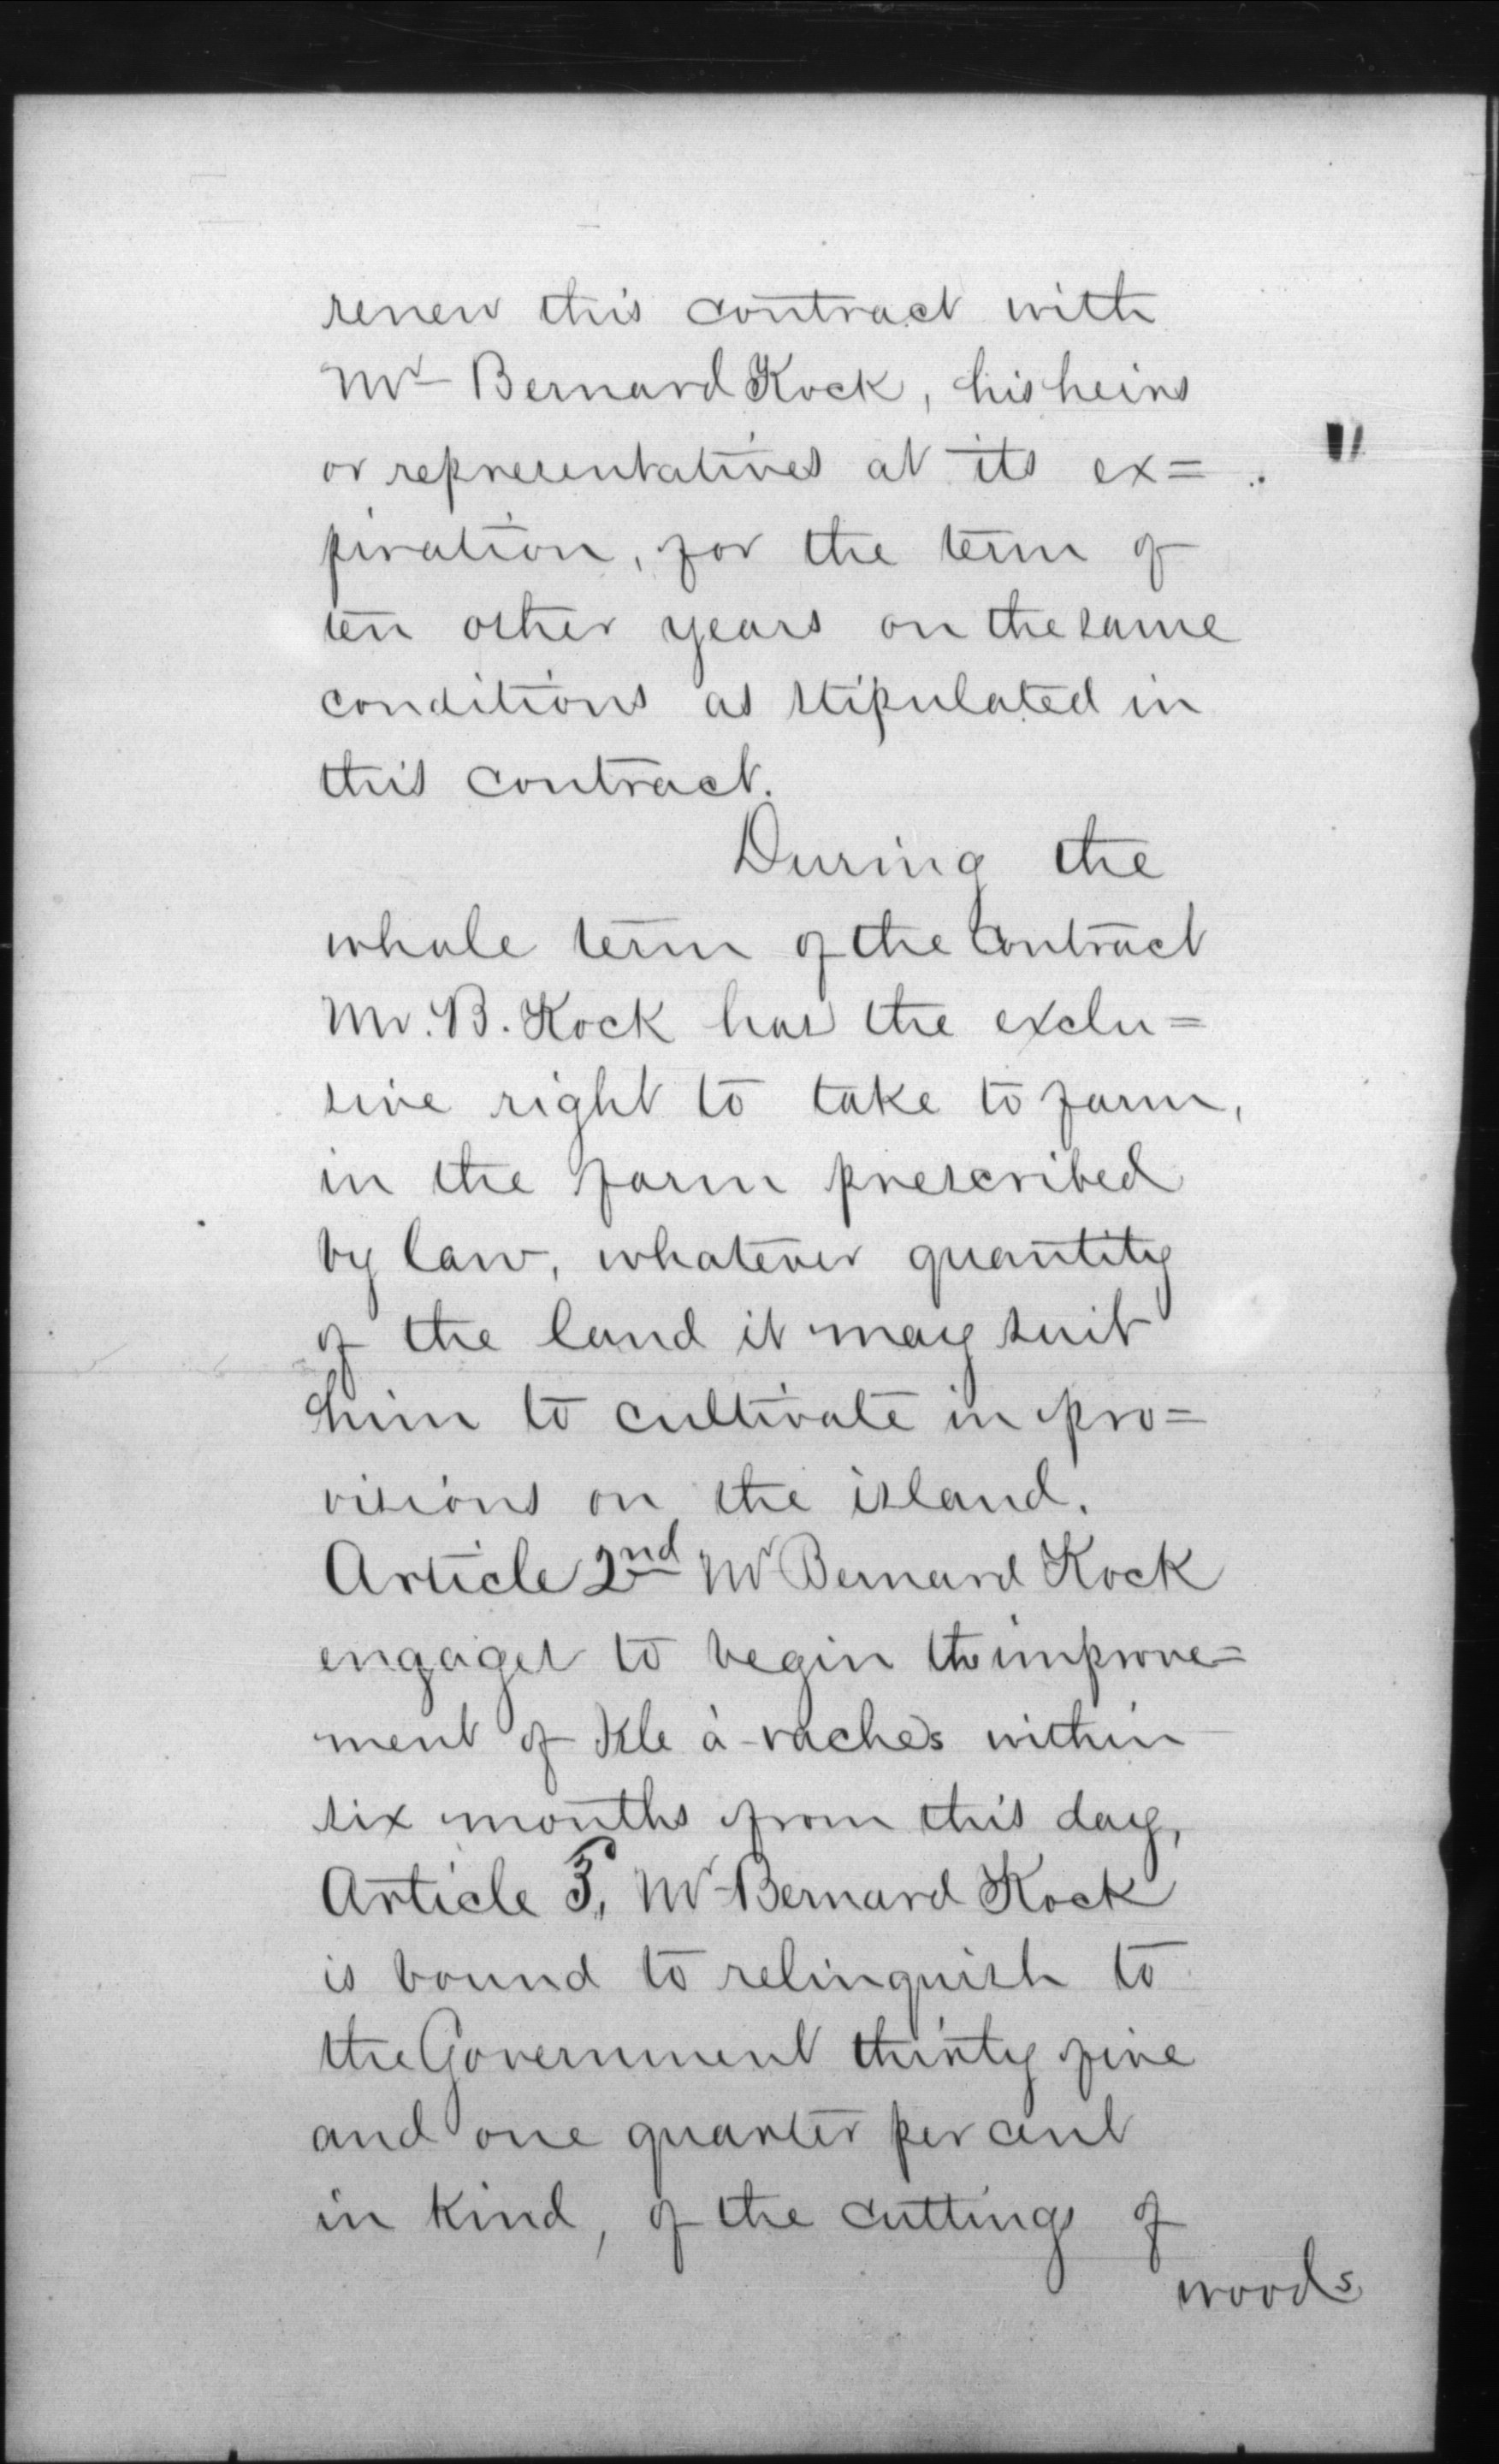 renew this contract with
Mr Bernard Kock, his heirs
or representatives at its ex=
piration, for the term of
ten other years on the same
conditions as stipulated in
this contract.
During the
whole term of the contract
Mr. B. Kock has the exclu=
sive right to take to farm,
in the form prescribed
by law, whatever quantity
of the land it may suit
him to cultivate in pro=
visions on the island.
Article 2nd Mr Bernard Kock
engages to begin the improve=
ment of Ile à-vaches within
six months from this day,
Article 3, Mr Bernard Kock
is bound to relinquish to
the Government thirty five
and one quarter per cent
in kind, of the cuttings of
woods